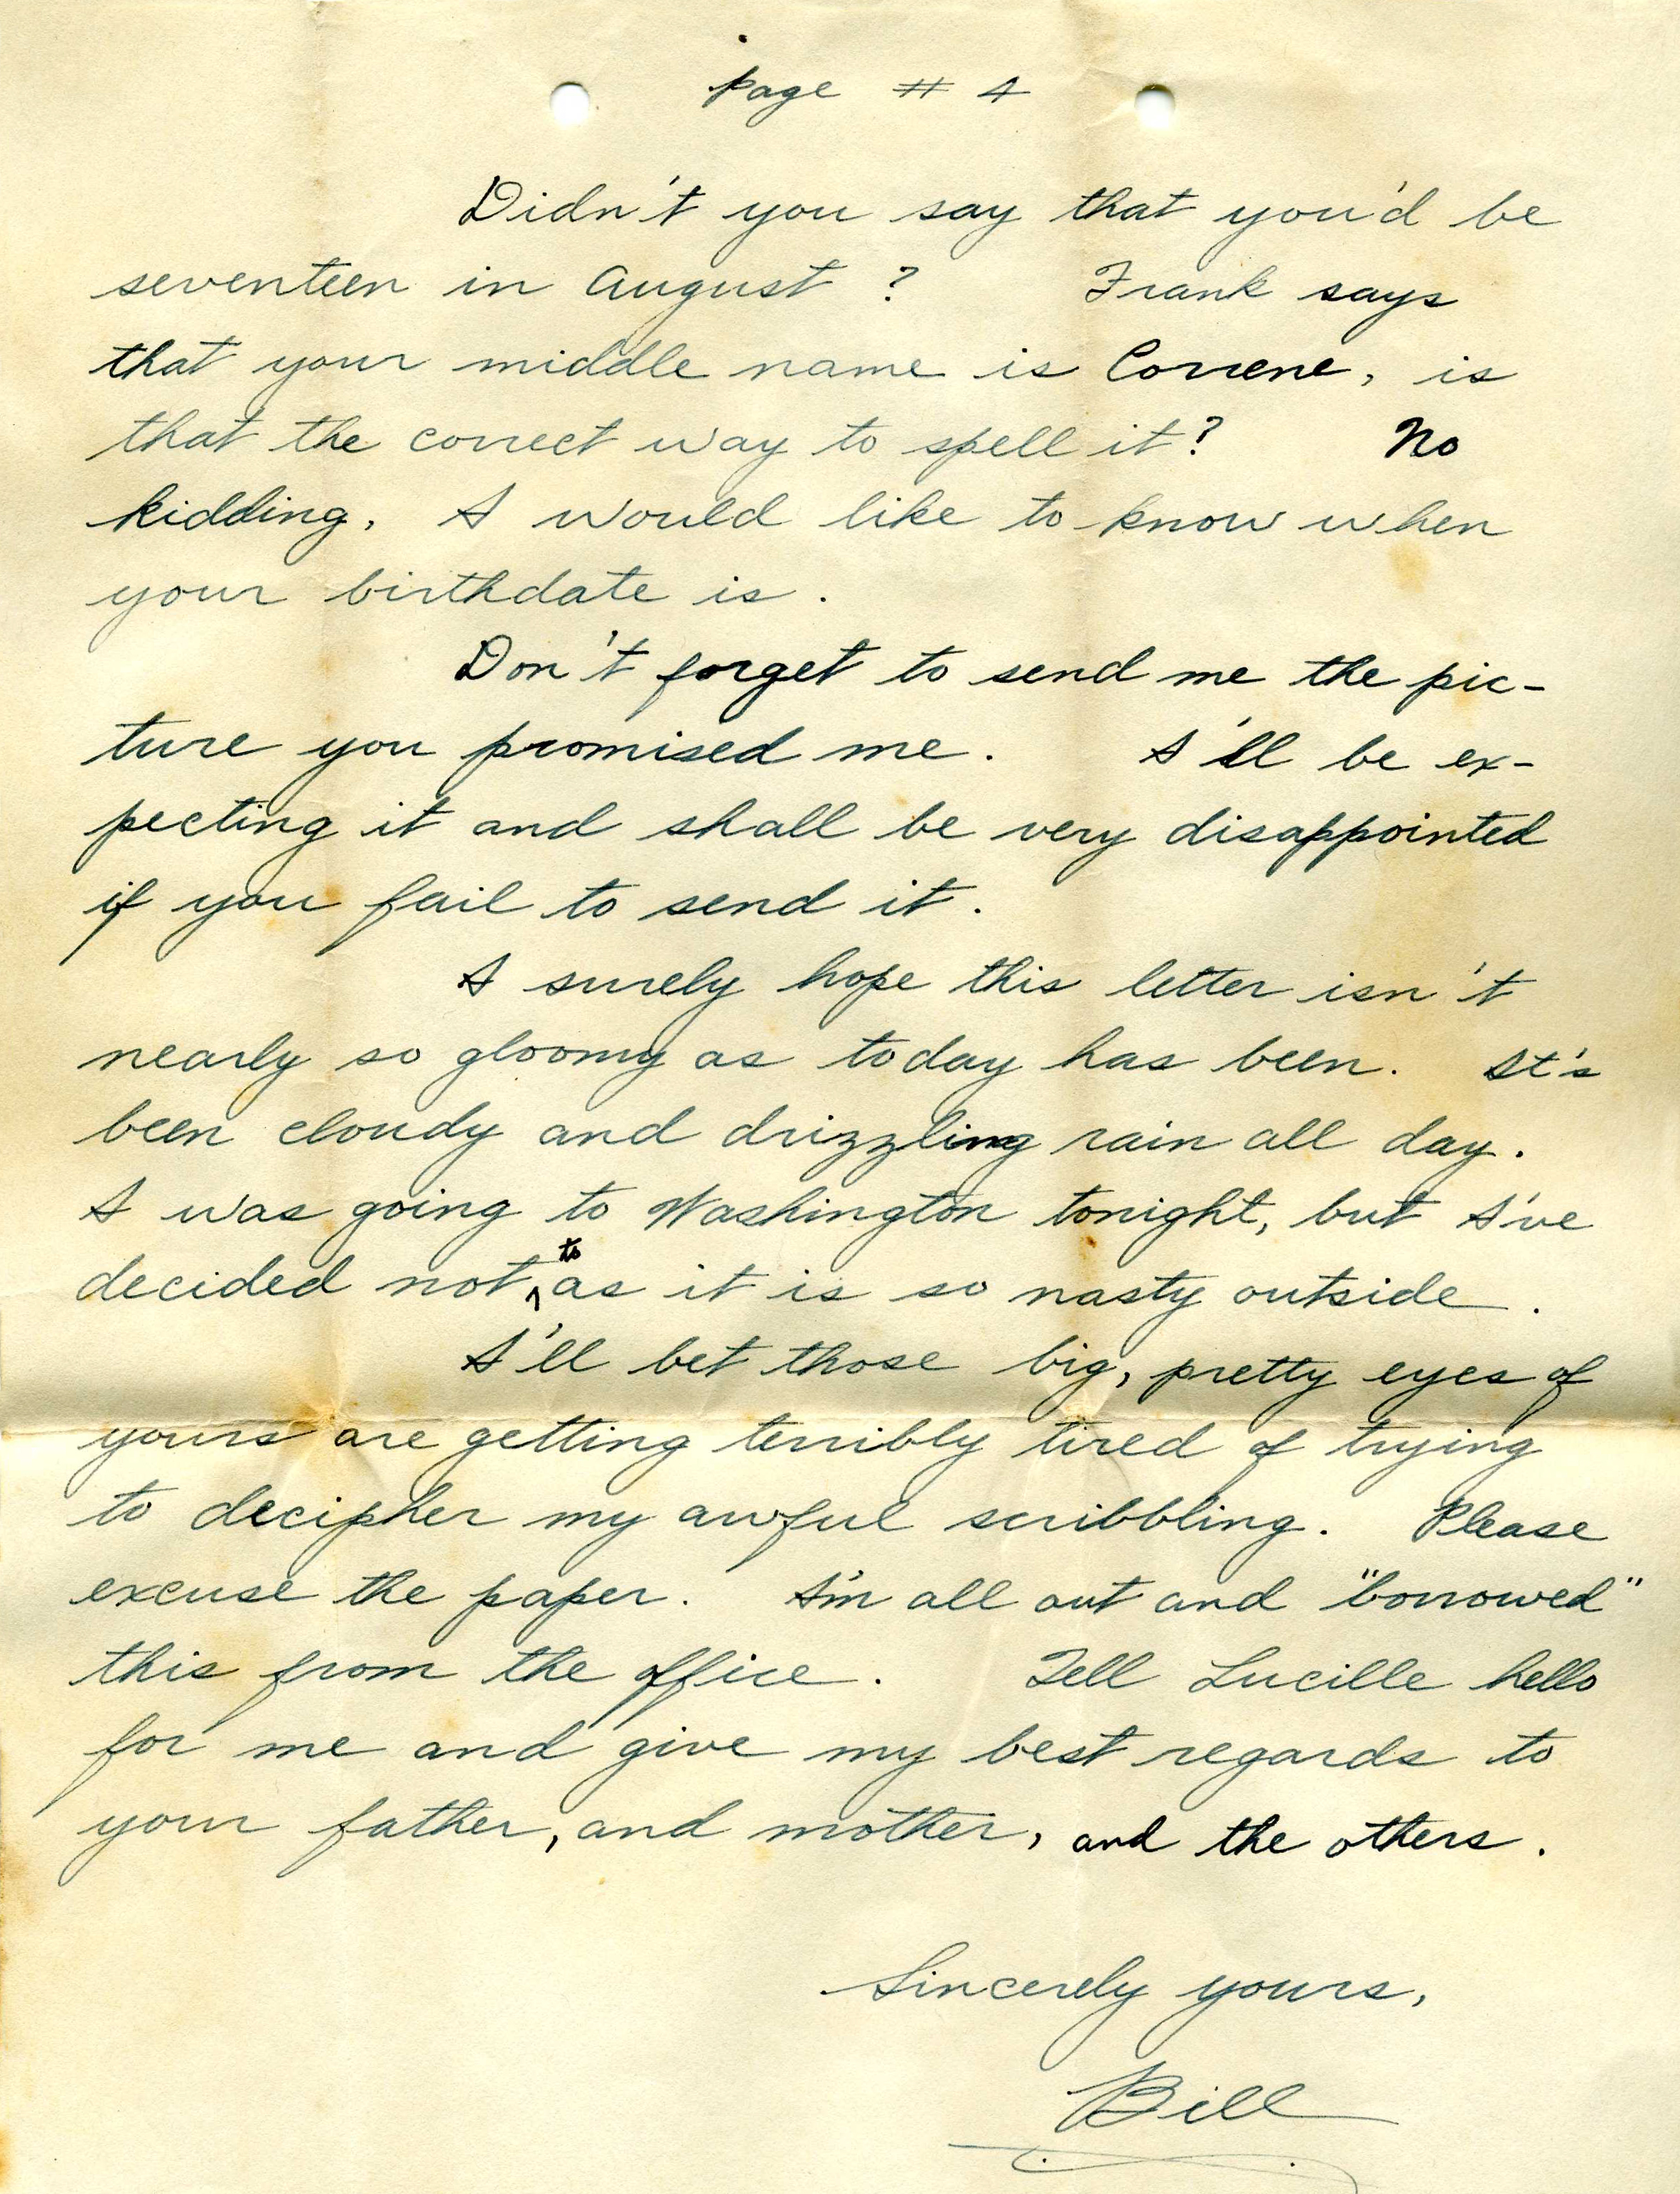 page # 4
Didn't you say that you'd be
seventeen in August ? Frank says
that your middle name is Correne, is
that the correct way to spell it? No
kidding, I would like to know when
your birthdate is .
Don't forget to send me the pic-
ture you promised me . I'll be ex-
pecting it and shall be very disappointed
if you fail to send it .
I surely hope this letter isn't
nearly so gloomy as today has been . It's
been cloudy and drizzling rain all day .
I was going to Washington tonight, but I've
decided not, to as it is so nasty outside .
I'll bet those big, pretty eyes of
yours are getting terribly tired of trying
to decipher my awful scribbling . Please
excuse the paper . I'm all out and "borrowed"
this from the office . Tell Lucille hello
for me and give my best regards to
your father, and mother, and the others .
Sincerely yours,
Bill